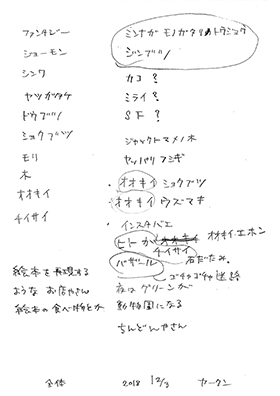 ファンタジー
ショーモン
シンワ
ヤツガタケ
ドウブツ
ショクブツ
モリ
木
オオキイ
チイサイ
絵本を再現する
ような お店やさん
絵本の食べ物とか
ミンナガ モノガタリノ トウジョウ
ジンブツ
カコ?
ミライ?
SF?
ジャックトマメノ木
ヤッパリ フシギ
・オオキイ ショクブツ
・オオキイ ウズマキ
・インスタバエ
ヒトが オオキイ オオキイ エホン
チイサイ
バザール 石だたみ。
ゴチャゴチャ 迷路
夜はグリーンが
動物園になる
ちんどんやさん
全体 2018 12/3